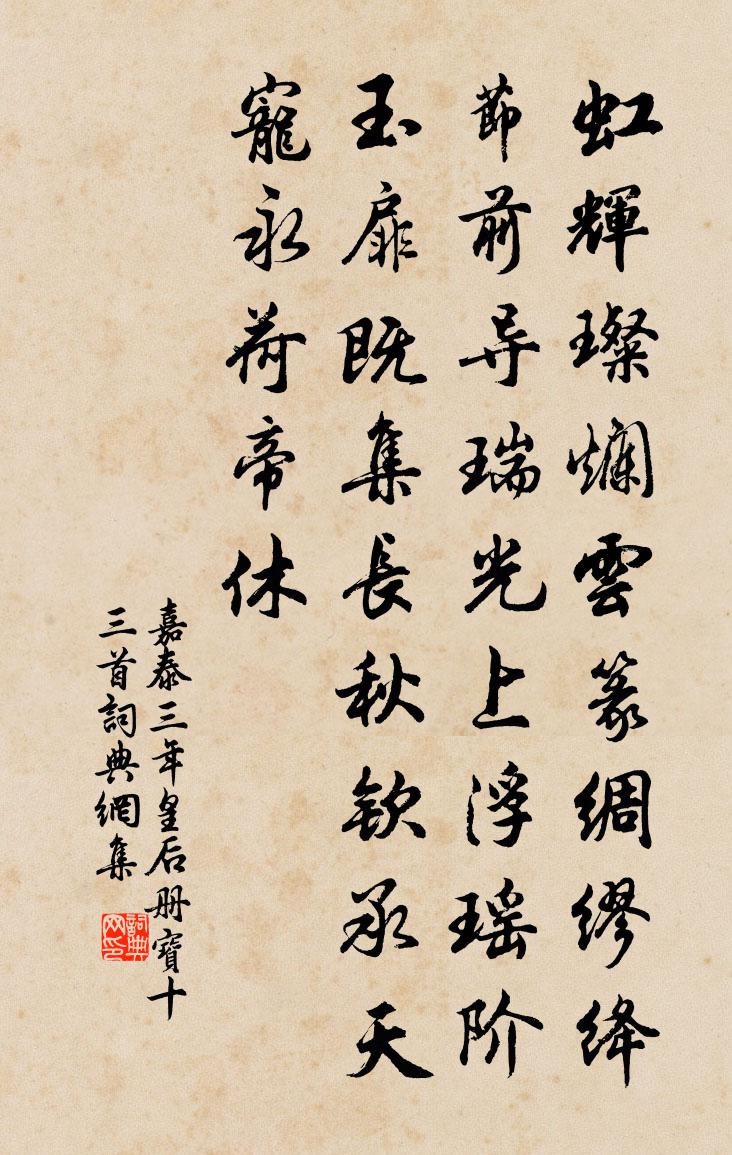 虹輝璨爛雲篆綢繆絳
節前导瑞光上浮瑶阶
玉扉既集長秋欽承天
寵永荷帝休
嘉泰三年皇后册寶十
三首詞典網集
詞典网印